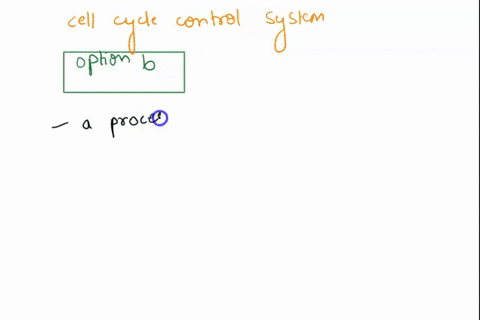 cell cycle control system
option b
- a proce